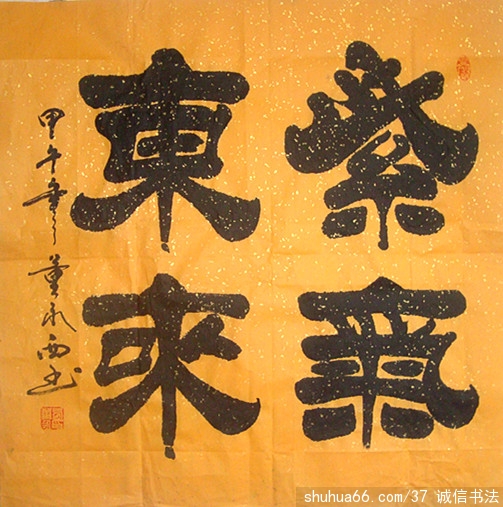 紫氣
東来
甲午年董永西书
shuhua66.com/37 诚信书法